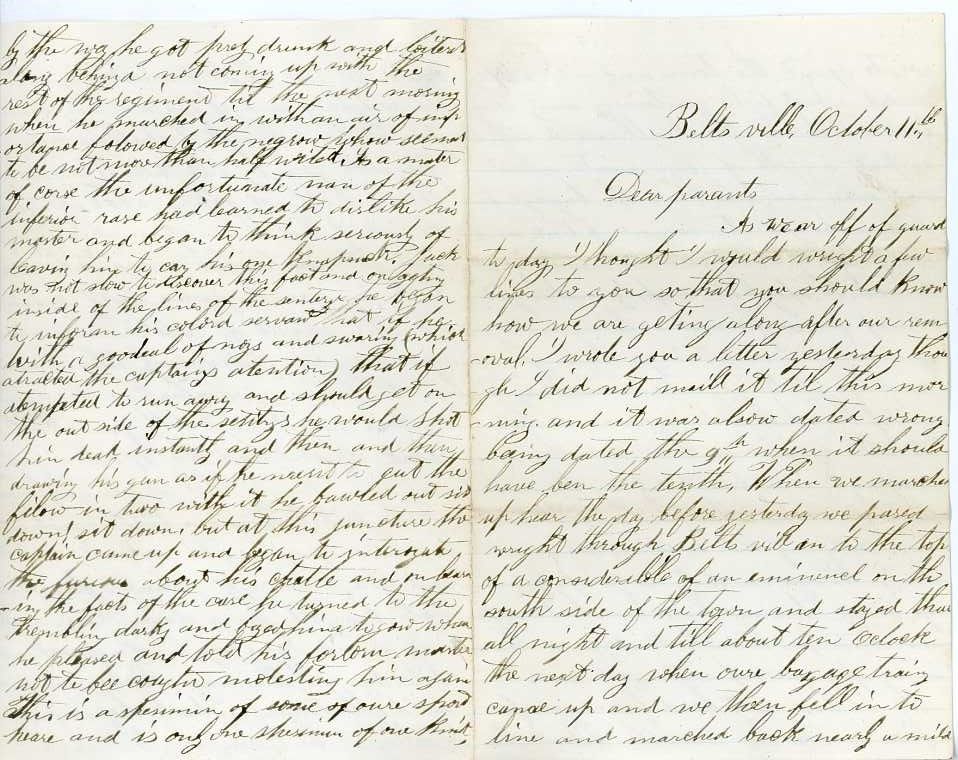 Belts ville, October 11th
Dear parants
As we ar off of guard
to day I thought I would wright a few
lines to you so that you should know
how we are geting along after our rem
oval. I wrote you a letter yesterday thou
gh I did not maill it til this mor
ning. and it was alsow dated wrong
being dated the 9th when it should
have ben the tenth, When we marched
up hear the day before yesterday we pased
wright through Belts vill on to the top
of a considerible of an eminence on the
south side of the town and stayed thare
all night and till about ten Oclock
the next day when oure baggage train
came up and we then fell in to
line and marched back nearly a mild
by the way he got prety drunk and loiterd
along behind not coming up with the
rest of the regiment til the next morning
when he marched in with an air of imp
ortance folowed by the negrow whow seemed
to be not more than half wited. As a mater
of corse the unfortunate man of the
inferior rase had learned to dislike his
master and began to think seriously of
leaving him to cary his one knapsack. Jack
was not slow to discover this fact and on
inside of the lines of the sentrys he began
to inform his colord servant that if he
with a goodeal of noys and swaring (which
atracted the captains atention) that if
atempted to run away and should get on
the out side of the sentrys he would shot
him dead instantly and then and then
drawing his gun as if he ment to cut the
felow in two with it he bawled out sit
down! sit down! but at this juncture the
captain came up and began to interogate
the about his chatle and on learn
-ing the facts of the case he turned to the
trembling darky and bged him to gow whare
he pleased and told his forlorn master
not to bee cought molesting him again
This is a spesimin of some of oure sport
heare and is only one spesimin of one kind,